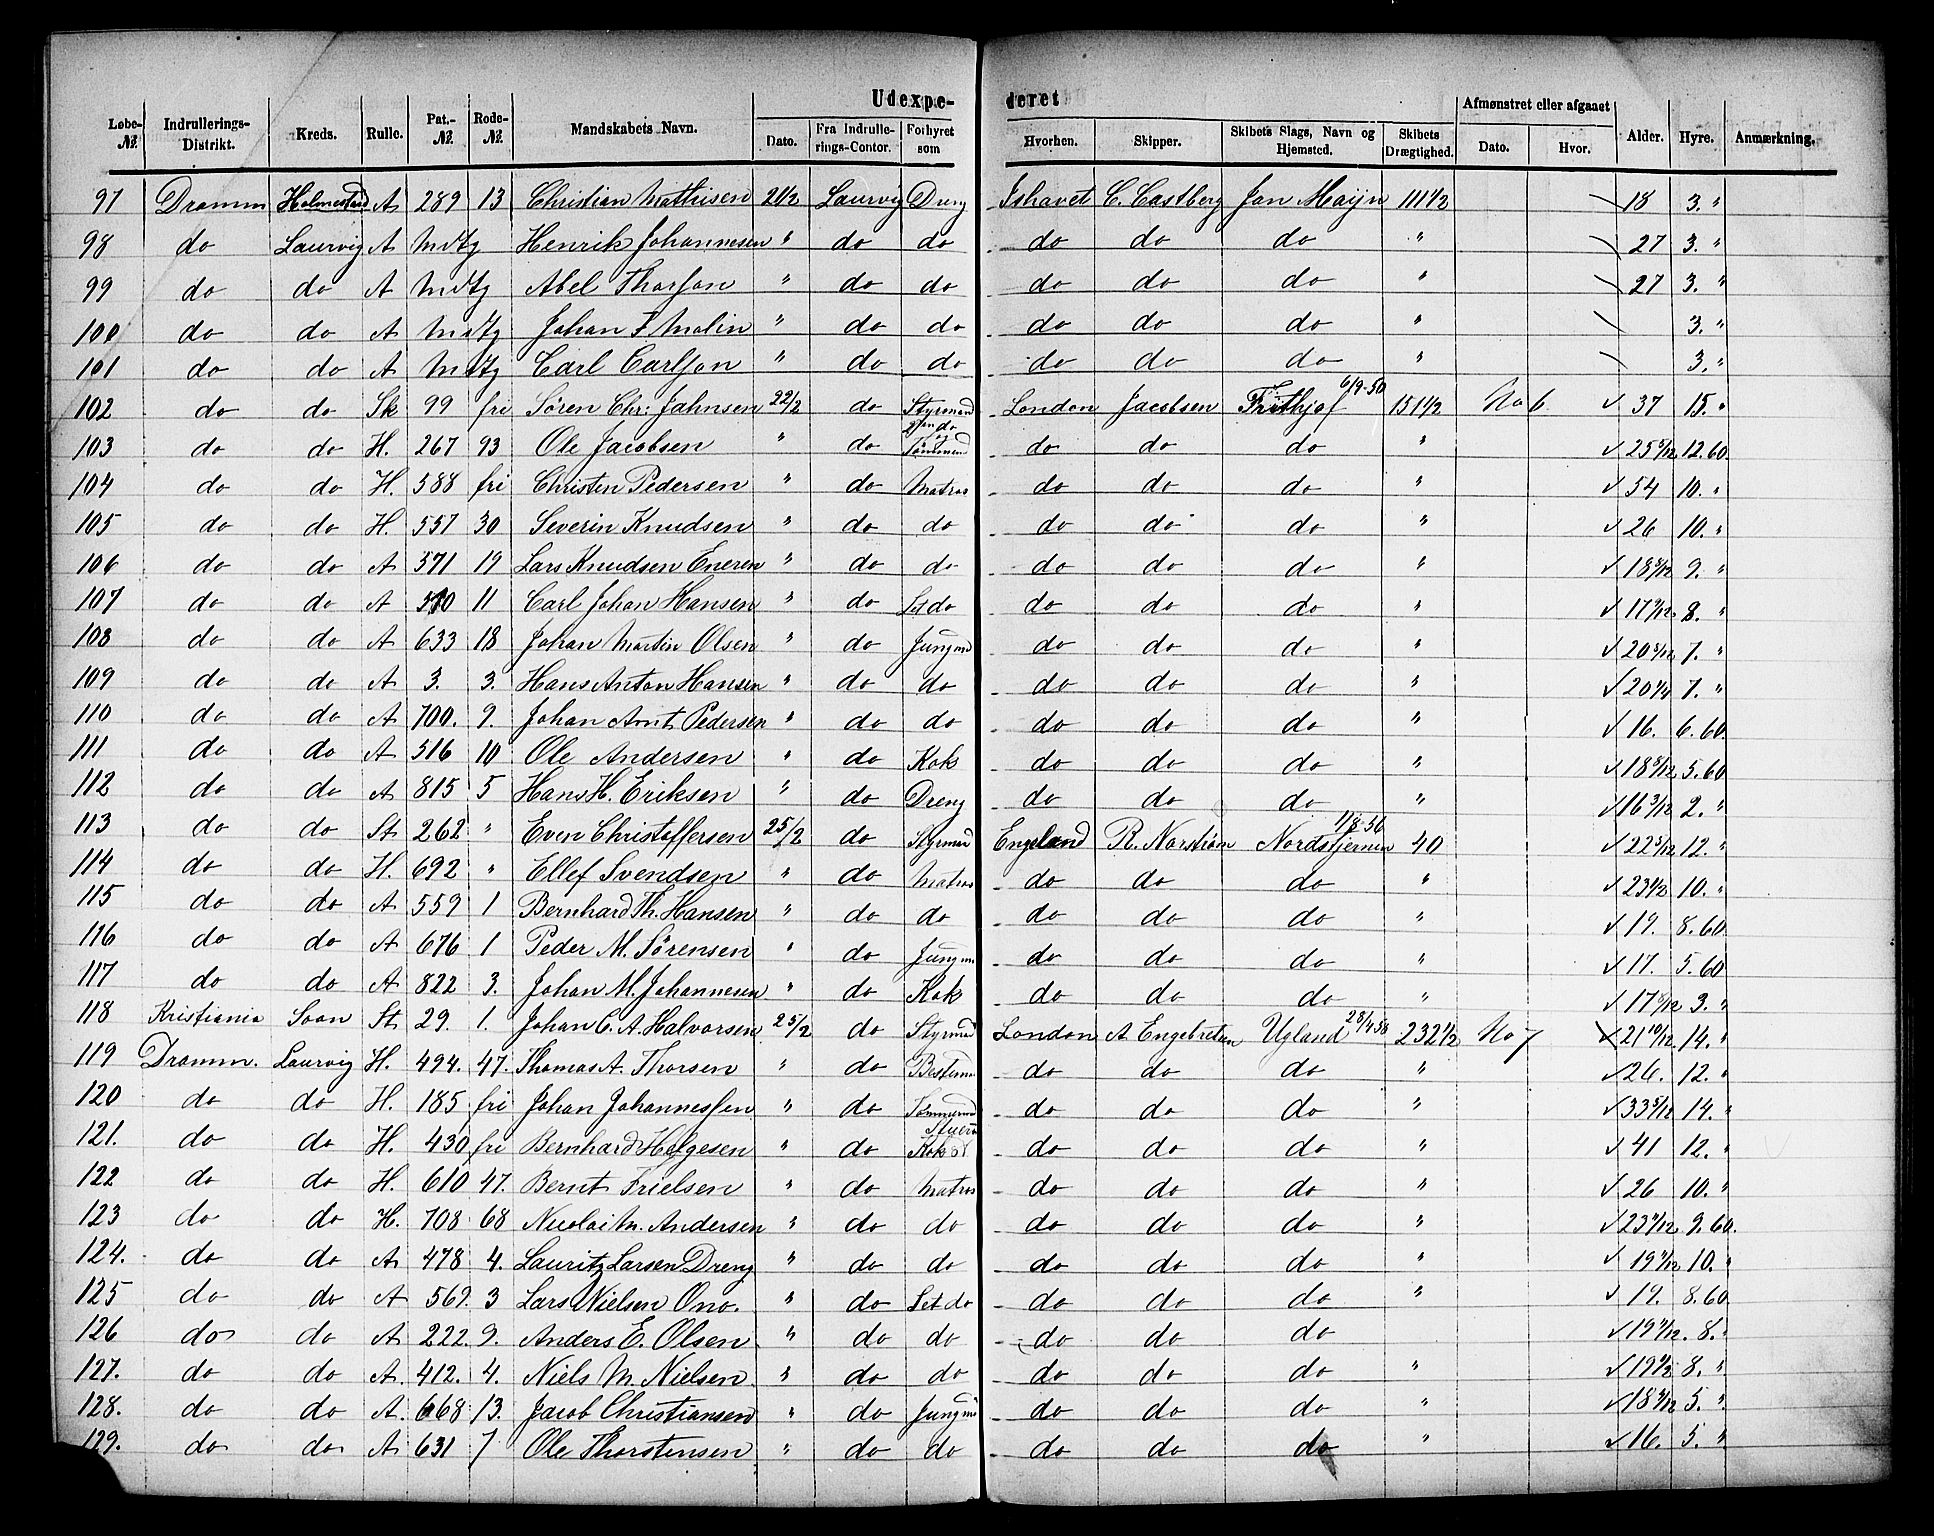 Udexpe- deret
Løbe-№. Indrullerings-Distrikt. Kreds. Rulle. Pat.-№. Rode-№. Mandskabets Navn. Dato. Fra Indrulle-rings-Contor. Forhyret som Hvorhen. Skipper. Skibets Slags, Navn og Hjemsted. Skibets Drægtighed. Afmønstret eller afgaaet Dato. Hvor. Alder. Hyre. Anmærkning.
97 Dramm Holmestrand A 289 13 Christian Mathisen 21/2 Laurvig Dreng Ishavet C. Castberg Jan Maijn 111 1/2 18 3. "
98 do Laurvig A Mdtg Henrik Johannesen " do do do do do " 27 3. "
99 do do A Mdtg Abel Thorson " do do do do do " 27 3. "
100 do do A Mdtg Johan F Malin " do do do do do " 3. "
101 do do A Mdtg Carl Carlson " do do do do do " 3. "
102 do do Sk 99 fri Sören Chr: Jahnsen 22/2 do Styrmand London Jacobsen Frithjof 6/9-50 151 1/2 No 6 ✓ 37 15. "
103 do do H. 267 93 Ole Jacobsen " do 2den do og Tömmmd do do do " ✓ 25 5/12 12.60.
104 do do H. 588 fri Christen Pedersen " do Matros do do do " ✓ 54 10. "
105 do do H. 557 30 Severin Knudsen " do do do do do " ✓ 26 10. "
106 do do A 371 19 Lars Knudsen Eneren " do do do do do " ✓ 18 5/12 9. "
107 do do A 11 Carl Johan Hansen " do Let do do do do " ✓ 17 9/12 8. "
108 do do A 633 18 Johan Martin Olsen " do Jungmd do do do " ✓ 20 5/12 7. "
109 do do A 3. 3. Hans Anton Hansen " do do do do do " ✓ 20 1/4 7. "
110 do do A 700. 9. Johan Arnt Pedersen " do do do do do " ✓ 16. 6.60.
111 do do A 516 10 Ole Andersen " do Kok do do do " ✓ 18 8/12 5.60
112 do do A 815 5 Hans H. Eriksen " do Dreng do do do " ✓ 16 3/12 2. "
113 do do St 262 " Even Christoffersen 25/2 do Styrmd Engeland R. Norström Nordstjernen 11/8-56 40 ✓ 22 5/12 12. "
114 do do H. 692 " Ellef Svendsen " do Matros do do do " ✓ 23 1/2 10. "
115 do do A 559 1 Bernhard Th. Hansen " do do do do do " ✓ 19. 8.60
116 do do A 676 1 Peder M. Sörensen " do Jungm do do do " ✓ 17. 5.60
117 do do A 822 3. Johan M. Johannesen " do Kok do do do " ✓ 17 8/12 3. "
118 Kristiania Soon St 29. 1. Johan C. A. Halvorsen 25/2 do Styrmd London A Engebretsen Ugland 28/4 58 232 1/2 No 7 21 10/12 14. "
119 Dramm. Laurvig H. 494. 47. Thomas A. Thorsen " do Bestem do do do " ✓ 26. 12. "
120 do do H. 185 fri Johan Johannessen " do Tömmermd do do do " ✓ 33 5/12 14. "
121. do do H. 430 fri Bernhard Helgesen " do Stuert Kok do do do " ✓ 41 12. "
122 do do H. 610 47. Bernt Frielsen " do Matros do do do " ✓ 26 10. "
123 do do H. 708 68 Nicolai M. Andersen " do do do do do " ✓ 23 7/12 9.60.
124. do do A 478 4. Lauritz Larsen Dreng " do do do do do " ✓ 19 7/12 10. "
125 do do A 569. 3 Lars Nielsen Ono. " do Let do do do do " ✓ 19. 8.60
126 do do A 222. 9. Anders E. Olsen " do do do do do ✓ 19 7/12. 8. "
127. do do A. 412. 4. Niels M. Nielsen " do do do do do " ✓ 19 1/2 8. "
128. do do A. 668 13. Jacob Christiansen " do Jungm do do do " ✓ 18 4/12 5. "
129. do do A 631 7 Ole Thorstensen " do do do do do " ✓ 16. 5. "